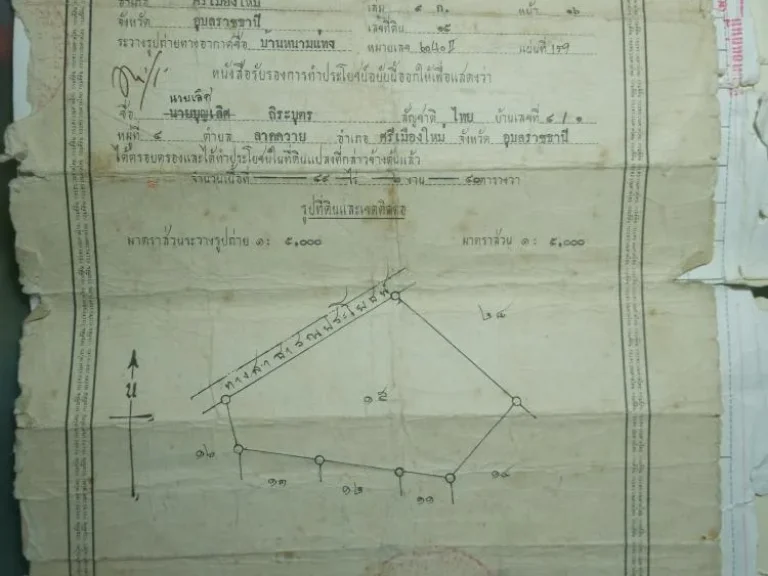 อำเภอ ศรีเมืองใหม่ เล่ม ๙ ก. หน้า ๑๖
จังหวัด อุบลราชธานี เลขที่ดิน ๑๕
ระวางรูปถ่ายทางอากาศชื่อ บ้านหนามแท่ง หมายเลข ๖๐๔๐ II แผ่นที่ ๑๕๑
หนังสือรับรองการทำประโยชน์ฉบับนี้ออกให้เพื่อแสดงว่า
นายเลิศ
ชื่อ นายบุญเลิศ ถิระบุตร สัญชาติ ไทย บ้านเลขที่ ๘ / ๑
หมู่ที่ ๔ ตำบล ลาดควาย อำเภอ ศรีเมืองใหม่ จังหวัด อุบลราชธานี
ได้ครอบครองและได้ทำประโยชน์ในที่ดินแปลงที่กล่าวข้างต้นแล้ว
จำนวนเนื้อที่ ๔๔ ไร่ ๒ งาน ๔๐ ตารางวา
รูปที่ดินและเขตติดต่อ
มาตราส่วนระวางรูปถ่าย ๑: ๕,๐๐๐ มาตราส่วน ๑: ๕,๐๐๐
ทางสาธารณประโยชน์
๒๘
น
๑๕
๑๖
๑๓
๑๒
๑๑
๑๔